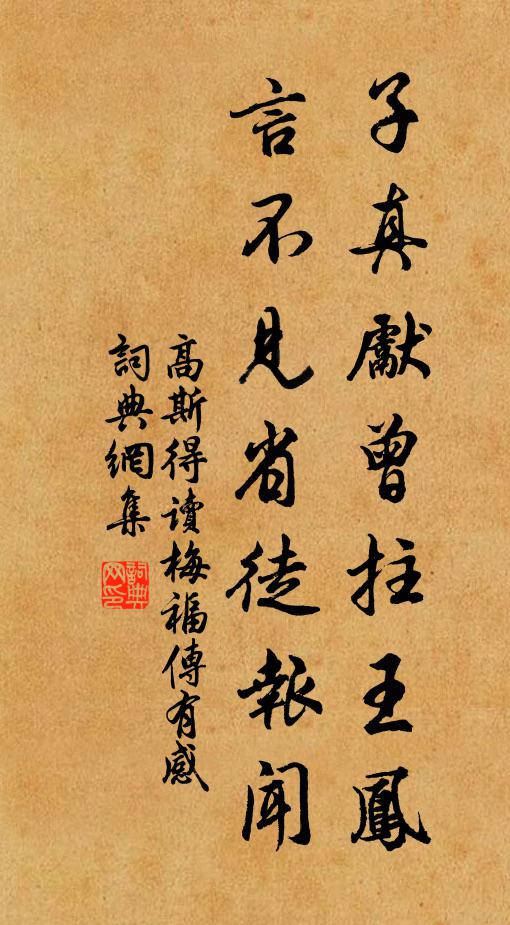 子真獻曾拄王鳳
言不見省徒報聞
高斯得讀梅福傳有感
詞典網集
詞典網印